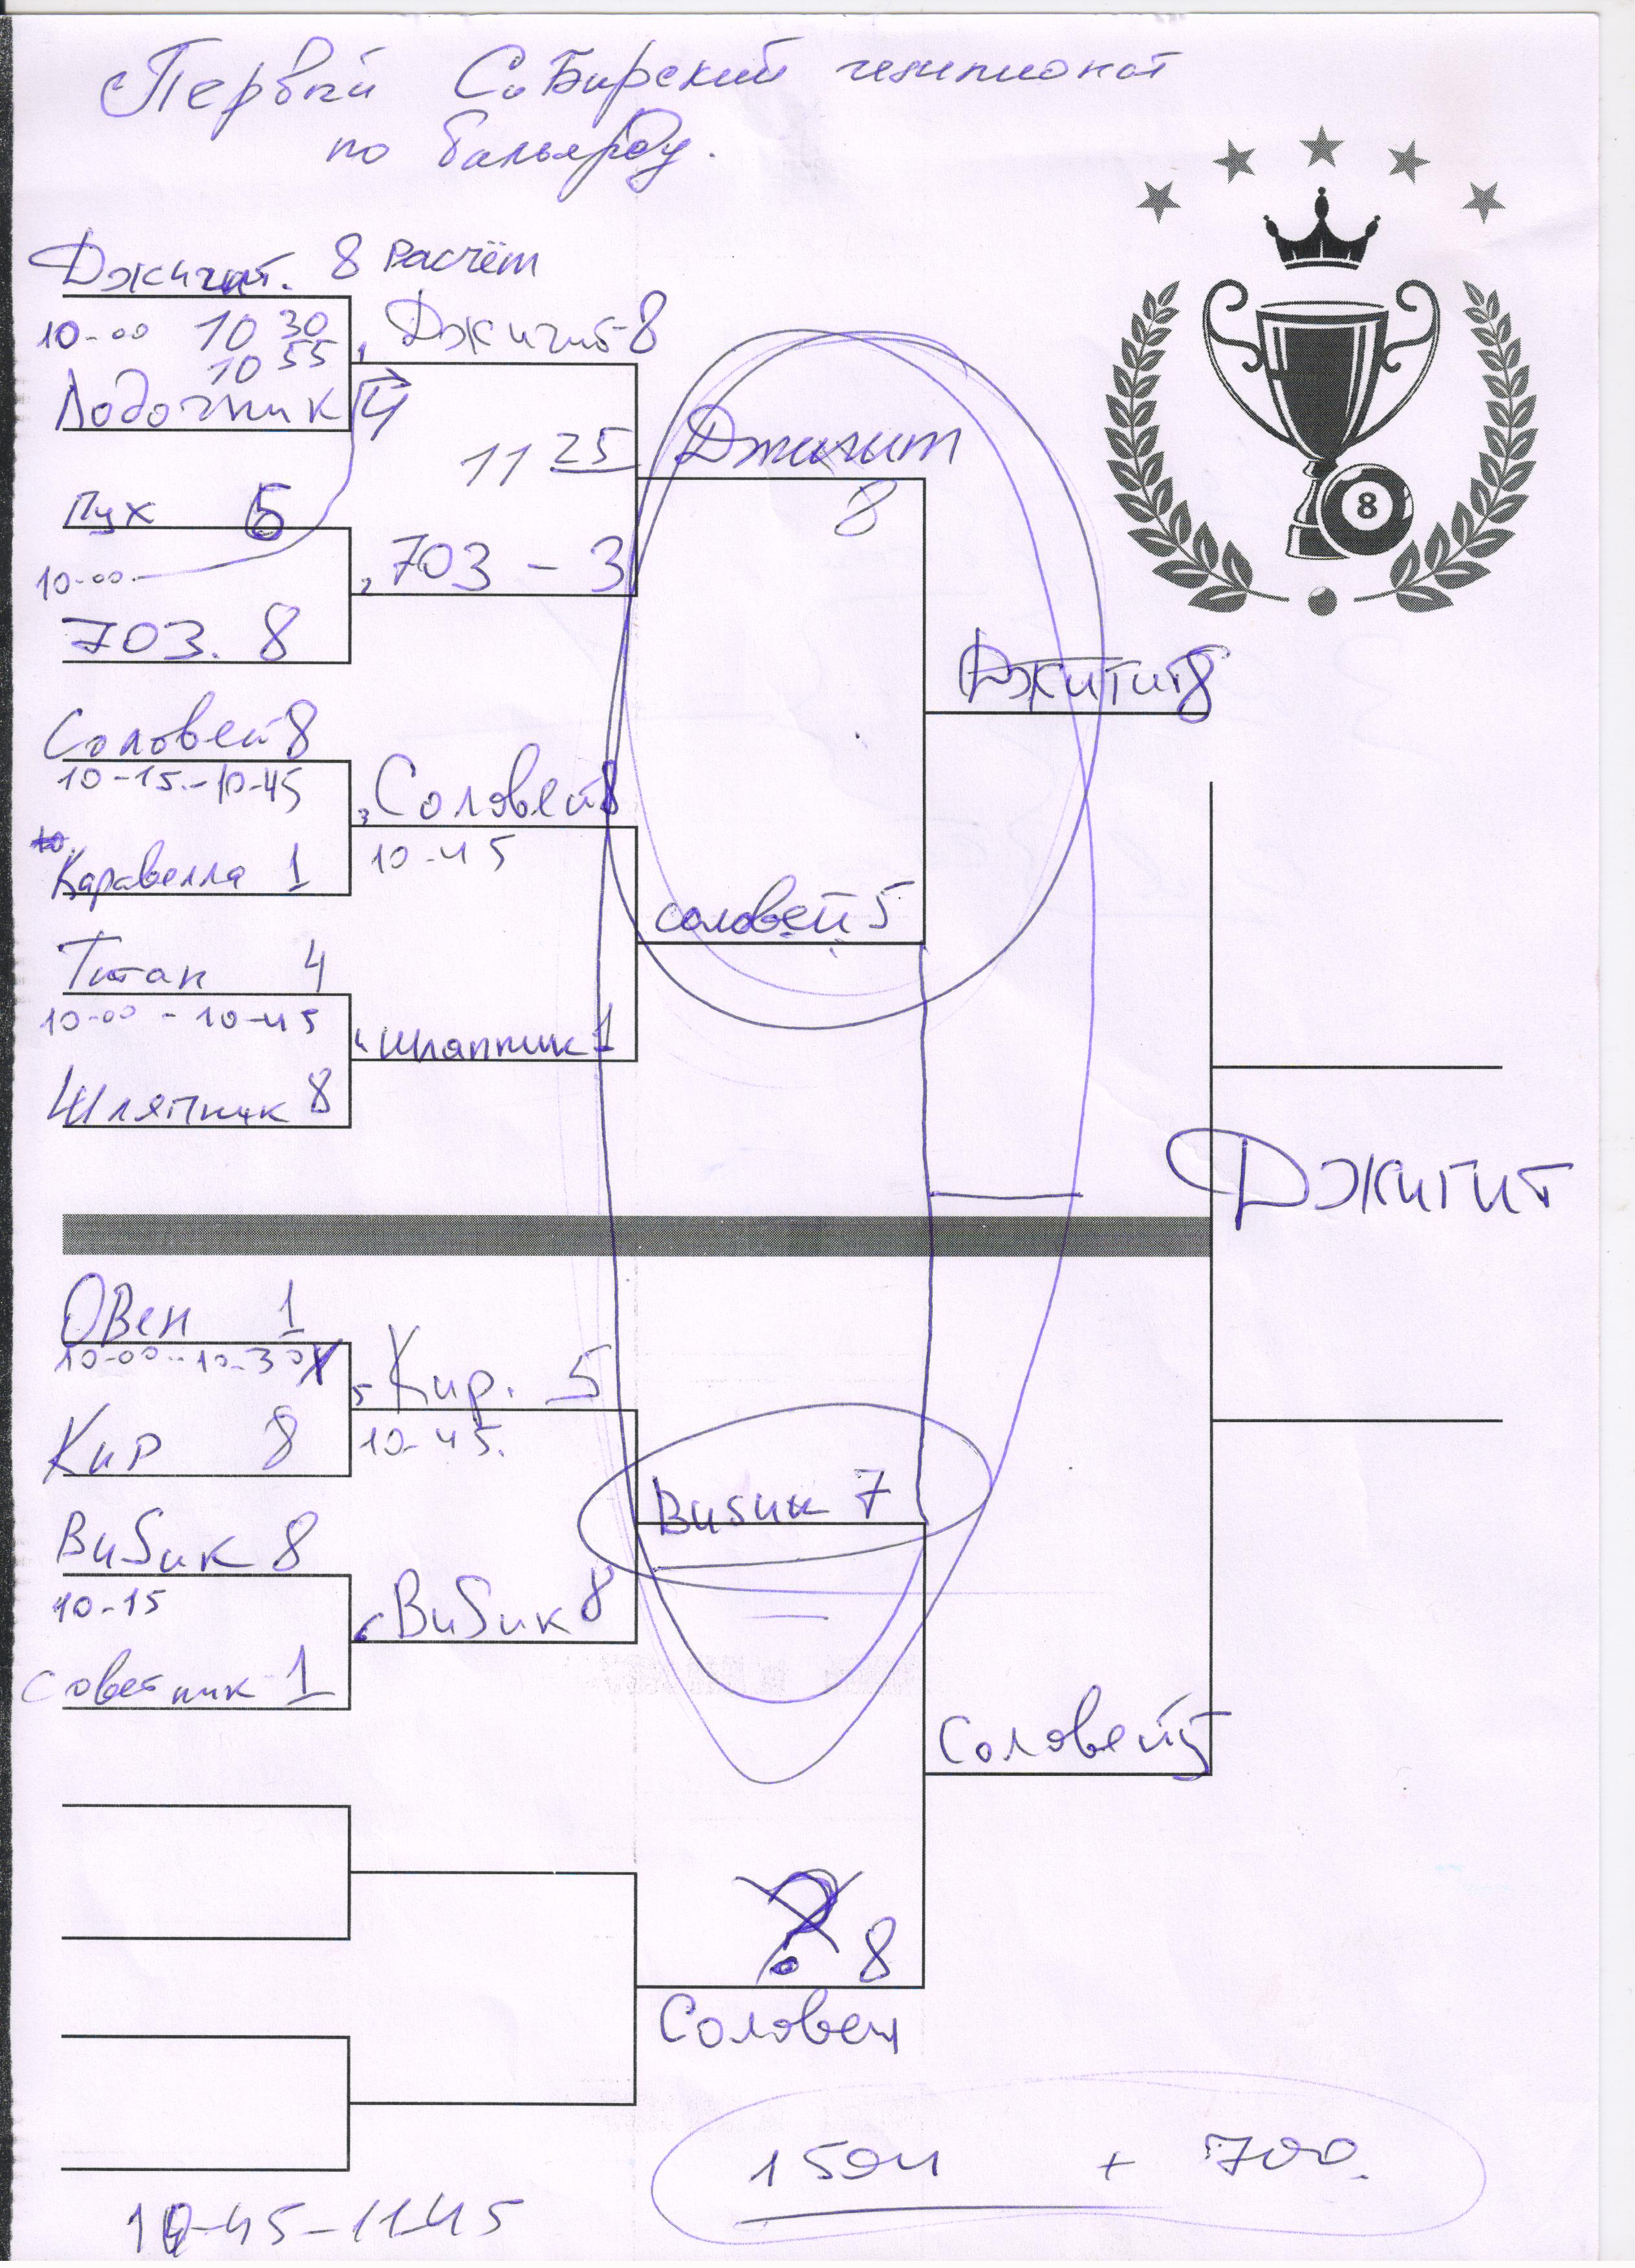 Первый Сибирский чемпионат
по бильярду.
Джигит. 8 Расчёт
10-00 10 30
10 55
Лодочник 4
1, Джигит-8
11 25
Пух 6
10-00
703. 8
2, 703 - 3
Джигит
8
Соловей 8
10-15.-10-45
Каравелла 1
3, Соловей 8
10-45
Титан 4
10-00 - 10-45
Шляпник 8
4 Шляпник 1
соловей 5
Джигит 8
8
Джигит
Овен 1
10-00-10-30
Кир 8
5, Кир. 5
10-45.
Визик 8
10-15
Советник 1
6 Визик 8
Визик 7
? 8
Соловей
Соловей 5
1504 + 700.
10-45-11-45